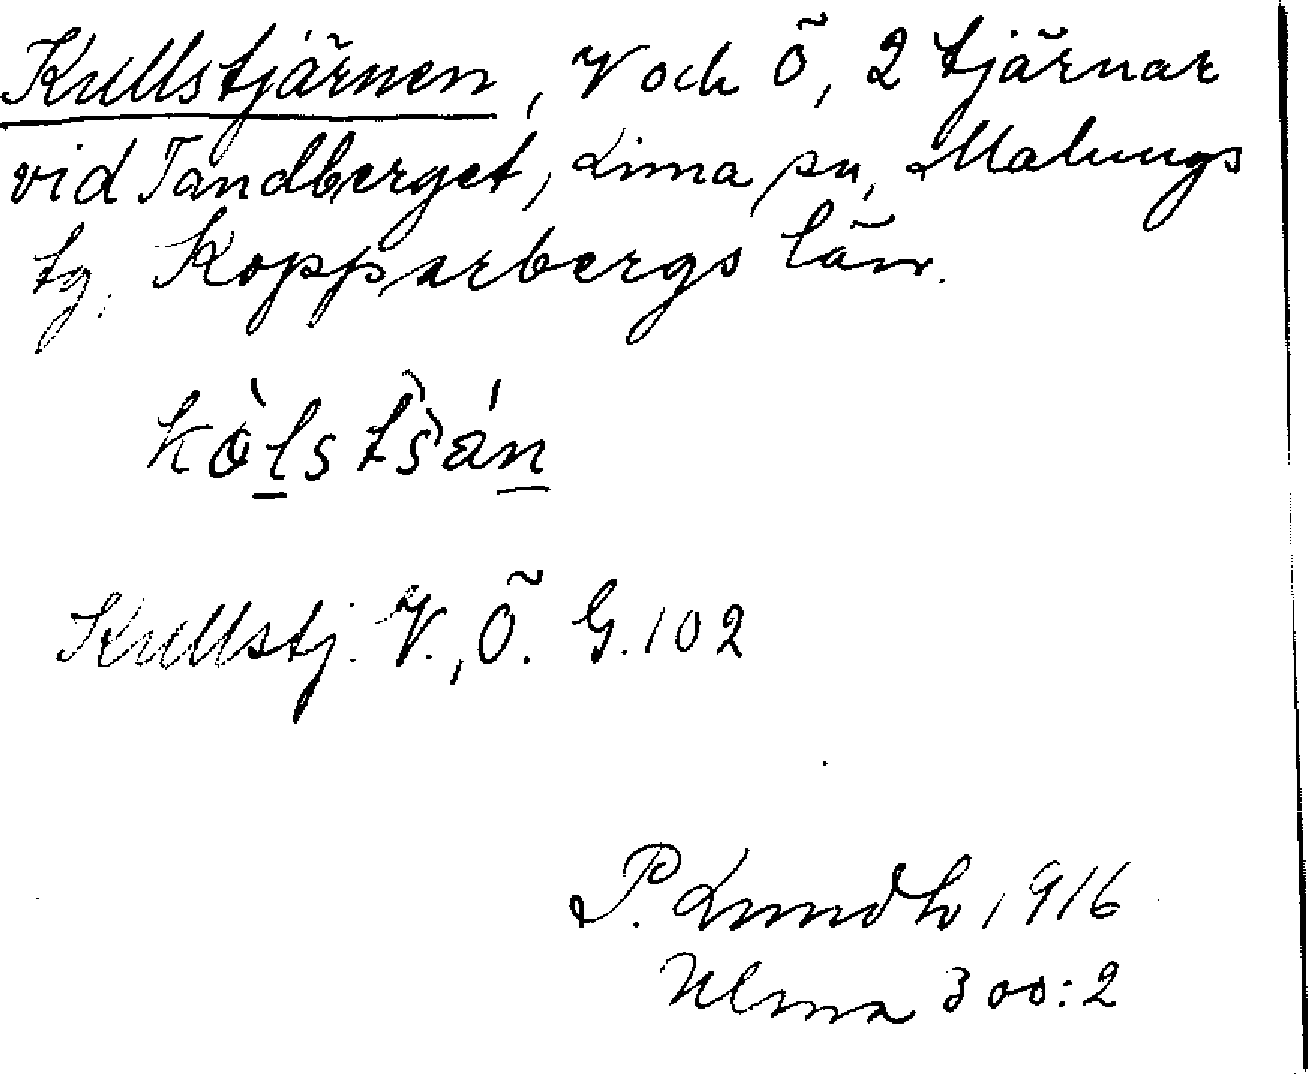 Kullstjärnen, V och Ö, 2 tjärnar
vid Tandberget, Lima sn, Malungs
tg. Kopparbergs län.
kòlstšán
Kullstj. V., Ö. G. 102
P. Lundh 1916
Ulma 300:2